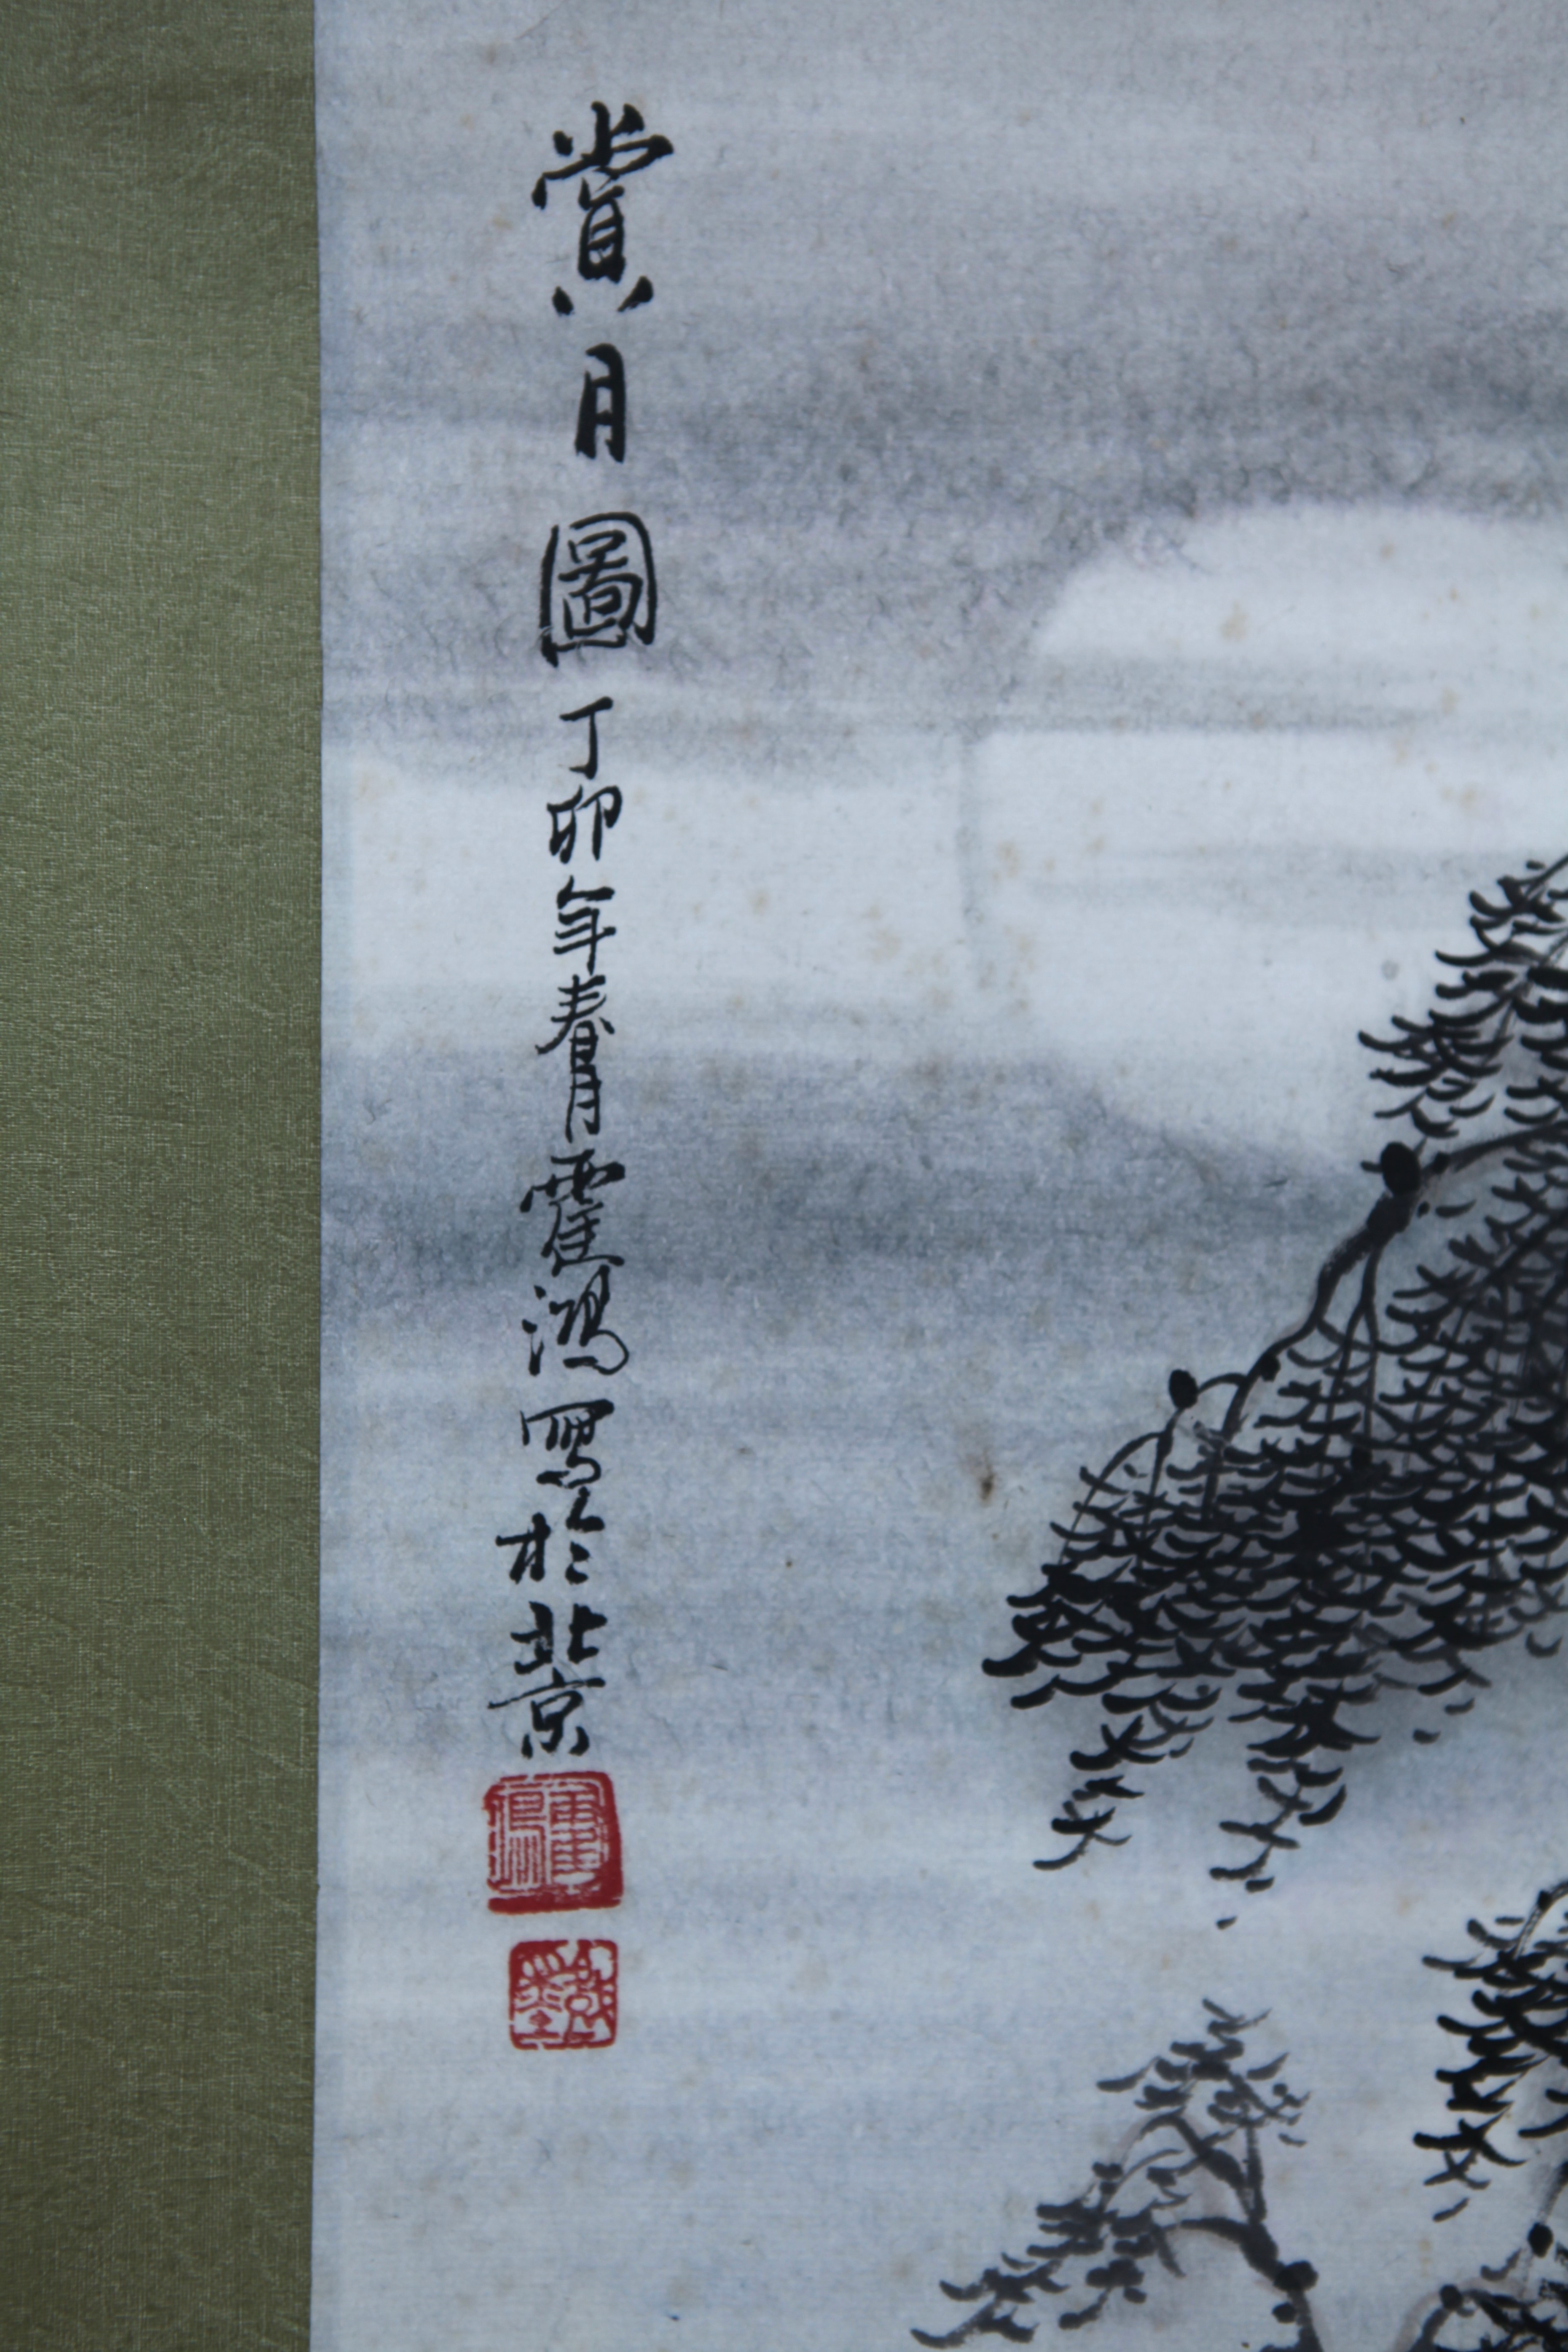 賞月圖 丁卯年春月霍鴻寫於北京